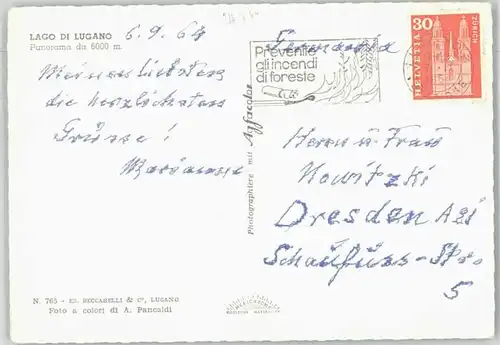 LAGO DI LUGANO
Panorama da 6000 m.
6.9.64
Meinen liebsten
die herzlichsten
Grüsse!
Marianne
N. 765 - ED. BECCARELLI & Co, LUGANO
Foto a colori di A. Pancaldi
Photographiere mit Agfacolor
Prevenite
gli incendi
di foreste
HELVETIA
30
ZÜRICH
Germania
Herrn u. Frau
Nowitzki
Dresden A21
Schaufuss-Str.
5